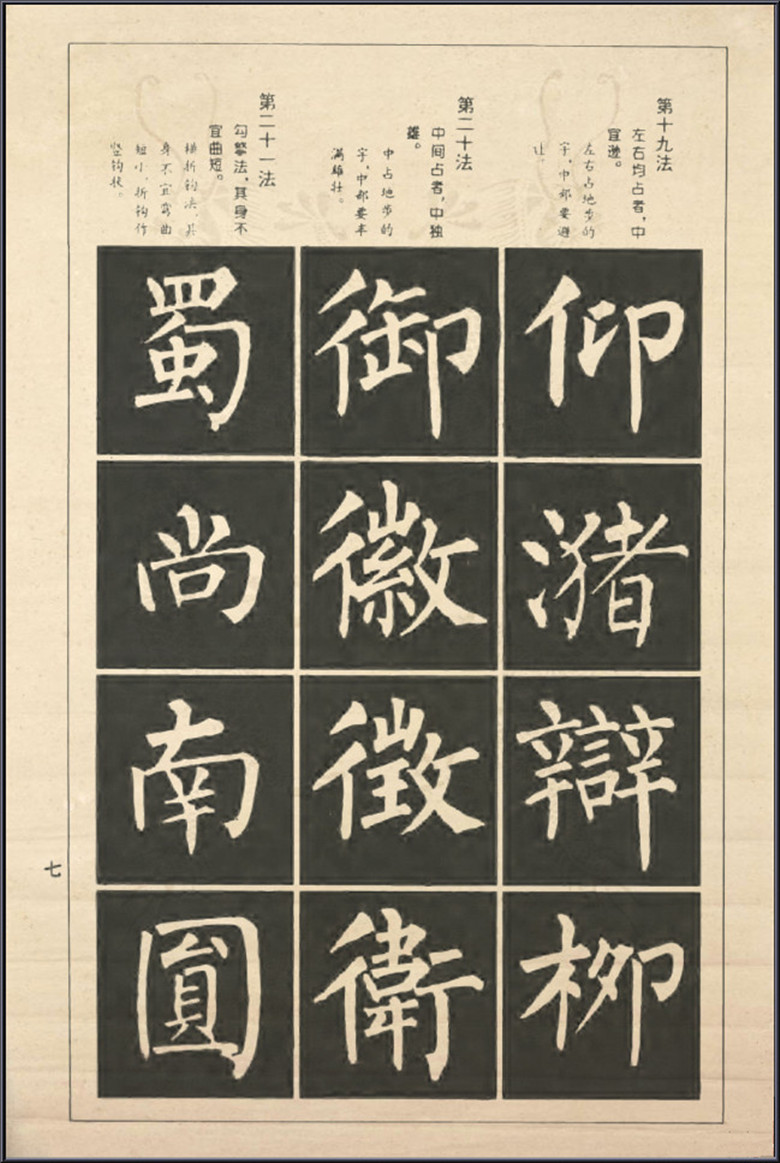 第十九法
左右均占者，中
宜逊。
左右占地步的
字，中部要避
让。
仰
潴
辯
柳
第二十法
中间占者，中独
雄。
中占地步的
字，中部要丰
满雄壮。
御
徽
徵
衛
第二十一法
勾擎法，其身不
宜曲短。
横折钩决，其
身不宜弯曲
短小，折钩作
竖钩状。
蜀
尚
南
圓
七